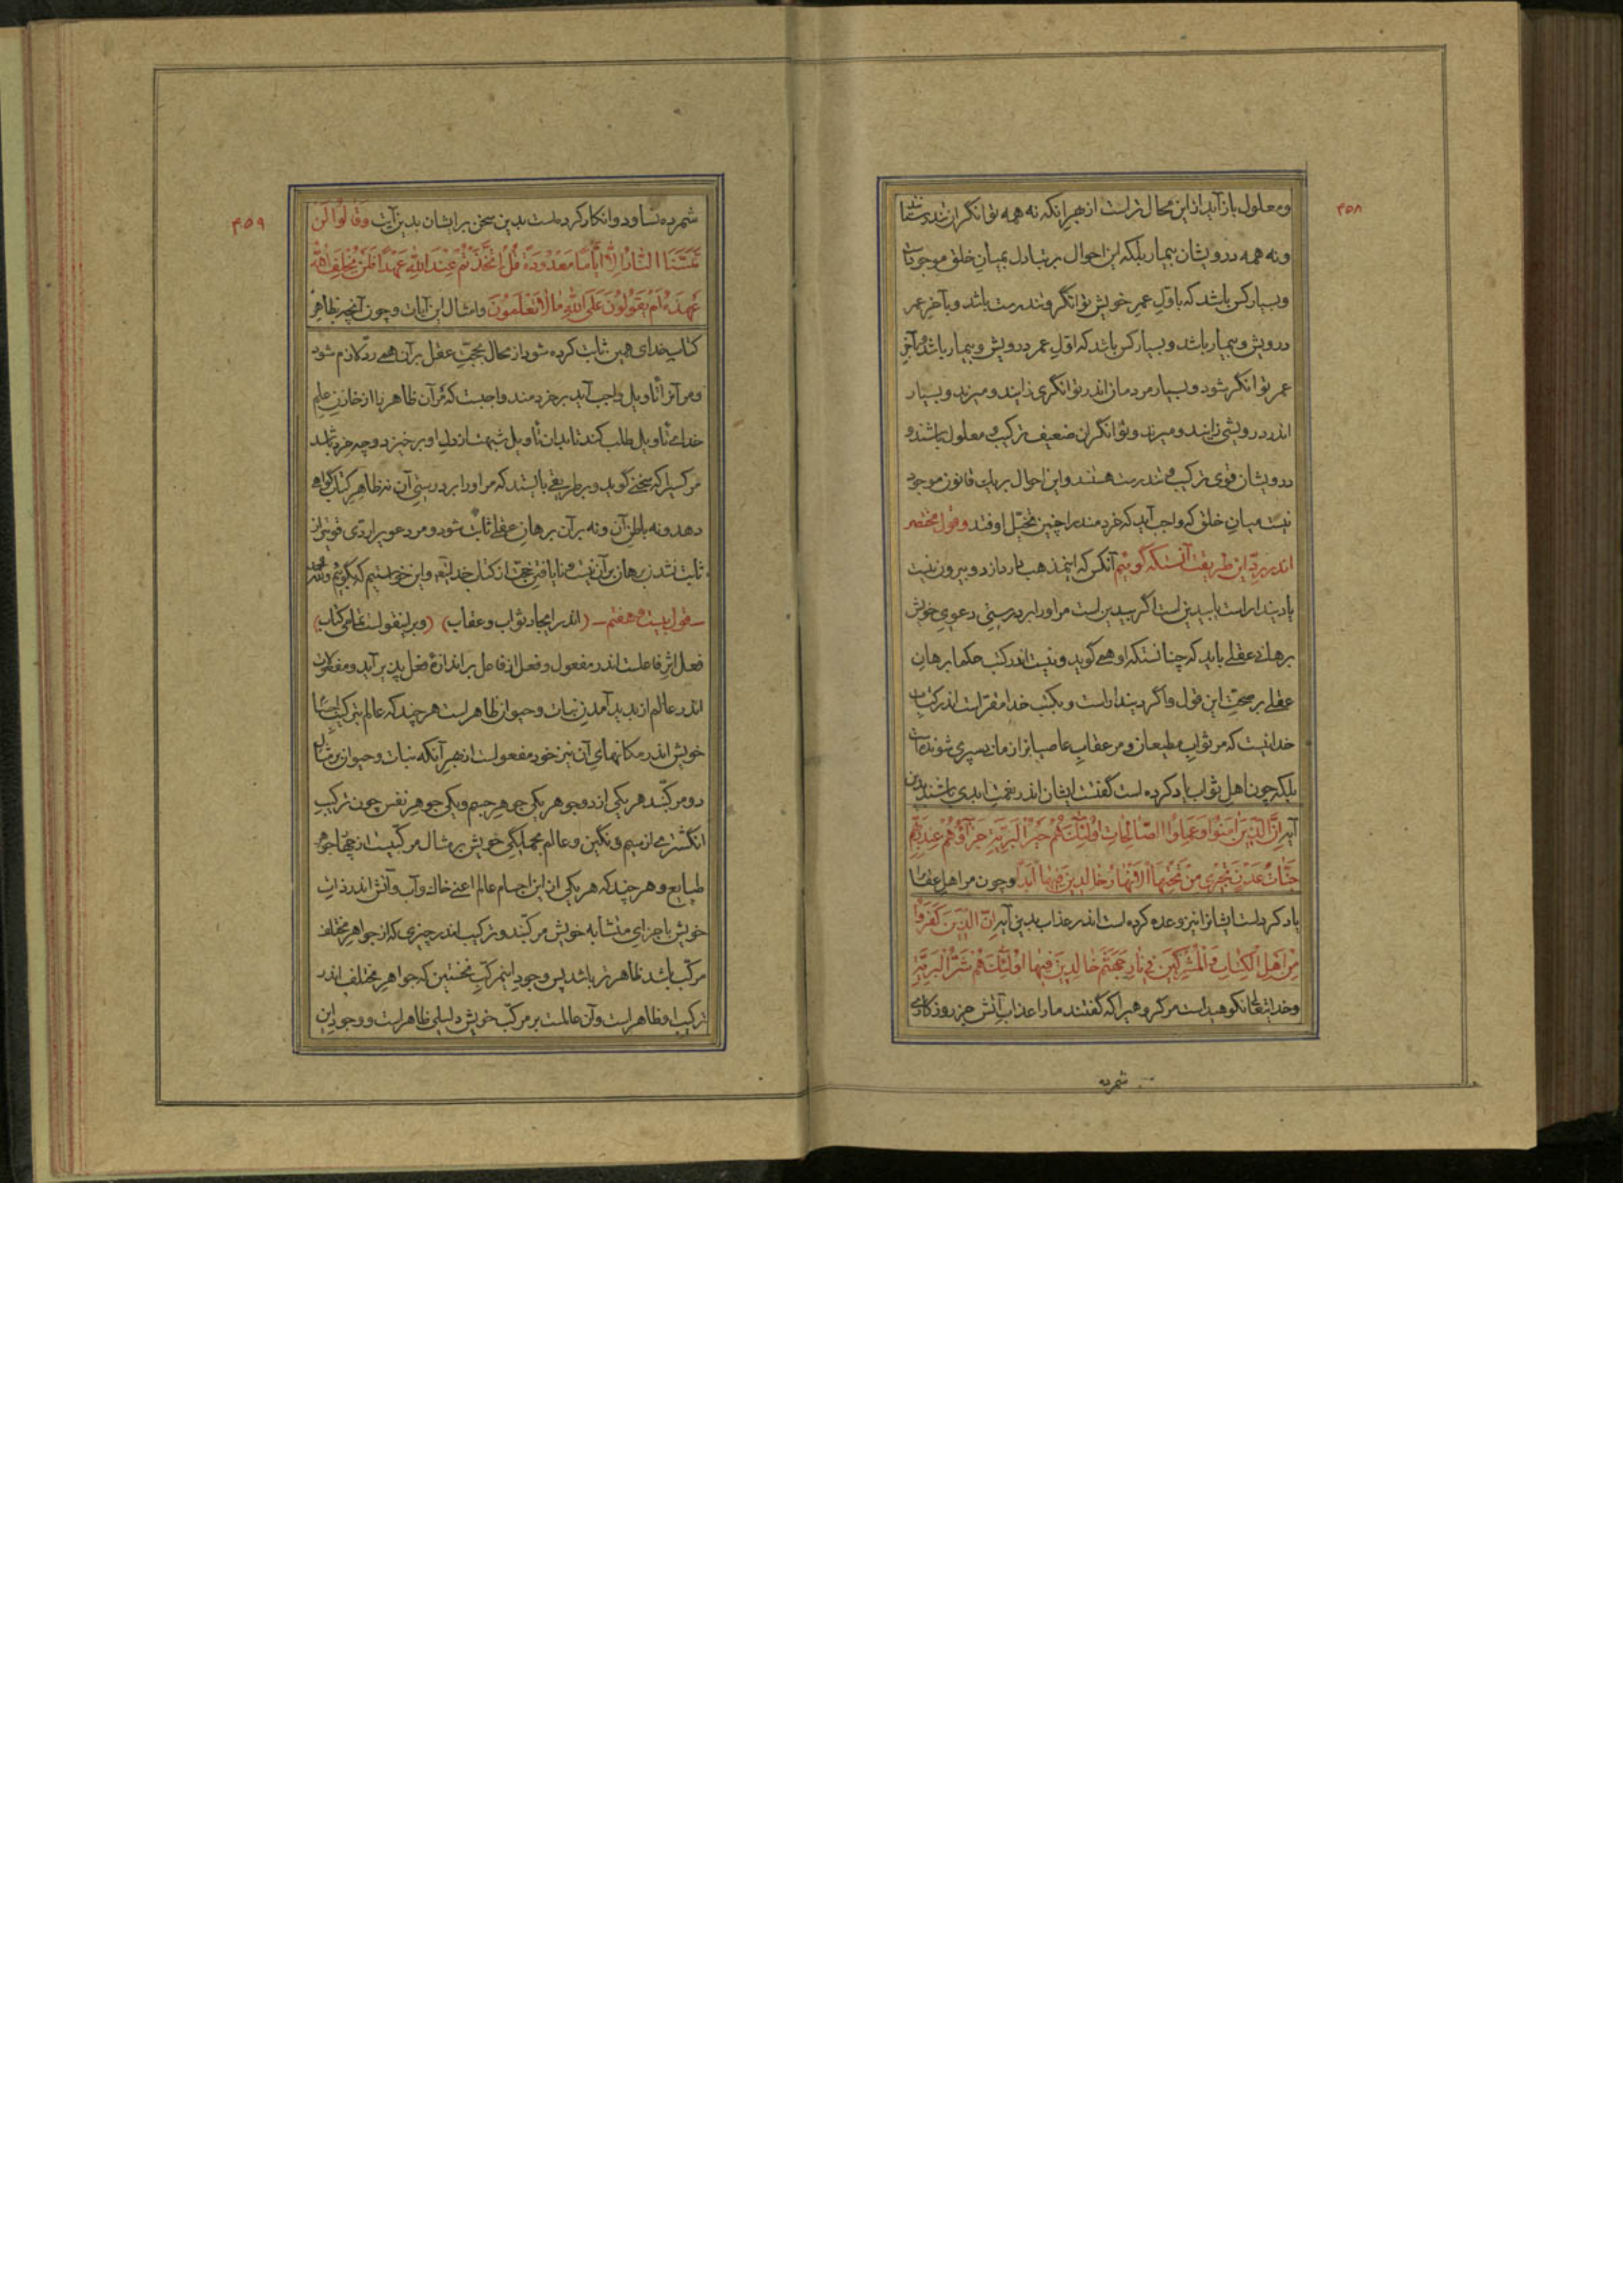 ۴۵۸
و معلول باز آید از این محال تر است از بهر آنکه نه همه توانگران تندرستند
و نه همه درویشان بیمار بلکه این احوال بر تبادل بمیان خلق موجود است
و بسیار کس باشد که باول عمر خویش توانگر و تندرست باشد و بآخر عمر
درویش و بیمار باشد و بسیار کس باشد که اول عمر درویش و بیمار باشد و بآخر
عمر توانگر شود و بسیار مردمان اندر توانگری زایند و میرند و بسیار
اندر درویشی زایند و میرند و توانگران ضعیف ترکیب و معلول باشند و
درویشان قوی ترکیب و تندرست هستند و این احوال بر یک قانون موجود
نیست میان خلق که واجب آید که خردمند را چنین تخیل اوفتد و قول مختصر
اندر رد این طریقت آنستکه گوئیم آنکس که این مذهب دارد از دو بیرون نیست
یا دیندار است یا بیدین است اگر بیدین است مر او را بر درستی دعوی خویش
برهانی عقلی باید که چنانستکه او همی گوید و نیست اندر کتب حکما برهان
عقلی بر صحت این قول و اگر دیندار است و بکتب خدا مقر است اندر کتاب
خدا نیست که مر ثواب مطیعان و مر عقاب عاصیانرا زمانی سپری شونده است
بلکه چون اهل ثواب یاد کرده است گفتست ایشان اندر نعمت ابدی باشند بدین
آیه اِنَّ الَّذینَ اٰمَنُوا وَعَمِلُوا الصّالِحاتِ اُولٰئِکَ هُمْ خَیْرُ الْبَرِیَّةِ جَزاۤؤُهُمْ عِنْدَ رَبِّهِمْ
جَنّاتُ عَدْنٍ تَجْری مِنْ تَحْتِهَا الْاَنْهارُ خالِدینَ فیها اَبَداً و چون مر اهل عقاب
یاد کرده است ایشانرا نیز وعده کرده است اندر عذاب بدین آیه اِنَّ الَّذینَ کَفَرُوا
مِنْ اَهْلِ الْکِتابِ وَالْمُشْرِکینَ فی نارِ جَهَنَّمَ خالِدینَ فیها اُولٰئِکَ هُمْ شَرُّ الْبَرِیَّةِ
و خدایتعالی نکوهیده است مر گروهیرا که گفتند ما را عذاب آتش جز روزگاری
شمرده
۴۵۹
شمرده نساود و انکار کرده است بدین سخن بر ایشان بدین آیت وَقالُوا لَنْ
تَمَسَّنَا النّارُ اِلّا اَیّاماً مَعْدُودَةً قُلْ اَتَّخَذْتُمْ عِنْدَ اللّٰهِ عَهْداً فَلَنْ یُخْلِفَ اللّٰهُ
عَهْدَهُ اَمْ تَقُولُونَ عَلَی اللّٰهِ ما لا تَعْلَمُونَ و امثال این آیات و چون آنچه بظاهر
کتاب خدای همین ثابت کرده شود از محال بحجت عقل بر آن همی رد لازم شود
و مر آنرا تأویل واجب آید بر خردمند واجبست که مر آن ظاهر را از خازن علم
خدای تأویل طلب کند تا بدان تأویل شبهت از دل او برخیزد و چه خرد باشد
مر کسیرا که سخنی گوید و بر طریقی بایستد که مر او را بر درستی آن نه ظاهر کتاب گواهی
دهد و نه باطن آن و نه بر آن برهان عقلی ثابت شود و مر دعویرا ردی قویتر از
ثابت نشدن برهان بر آن نیست و نایافتن حجت از کتاب خدا بر آن و این خواستیم که بگوئیم
ـ قول بیست و هفتم ـ (اندر ایجاد ثواب و عقاب) (و بر اینقول است تمامی کتاب)
فعل اثر فاعلست اندر مفعول و فعل از فاعل بر اندازۀ فعل پذیر آید و مفعولات
اندر عالم از پدید آمدن نبات و حیوان ظاهر است هر چند که عالم بترکیب اجسام
خویش اندر مکانهای آن نیز خود مفعولست از بهر آنکه نبات و حیوان بر مثال
دو مرکبند هر یکی از دو جوهر یکی جوهر جسم و یکی جوهر نفس چون ترکیب
انگشتری از سیم و نگین و عالم بجملگی خویش بر مثال مرکبیست از چهار جوهر
طبایع و هر چند که هر یکی از این اجسام عالم اعنی خاک و آب و آتش اندر ذات
خویش باجزای متشابه خویش مرکبند و ترکیب اندر چیزی که از جواهر مختلف
مرکب باشد ظاهرتر باشد پس وجود این مرکب نخستین که جواهر مختلف اندر
ترکیب او ظاهر است و آن عالمست بر مرکب خویش دلیلی ظاهر است و وجود این